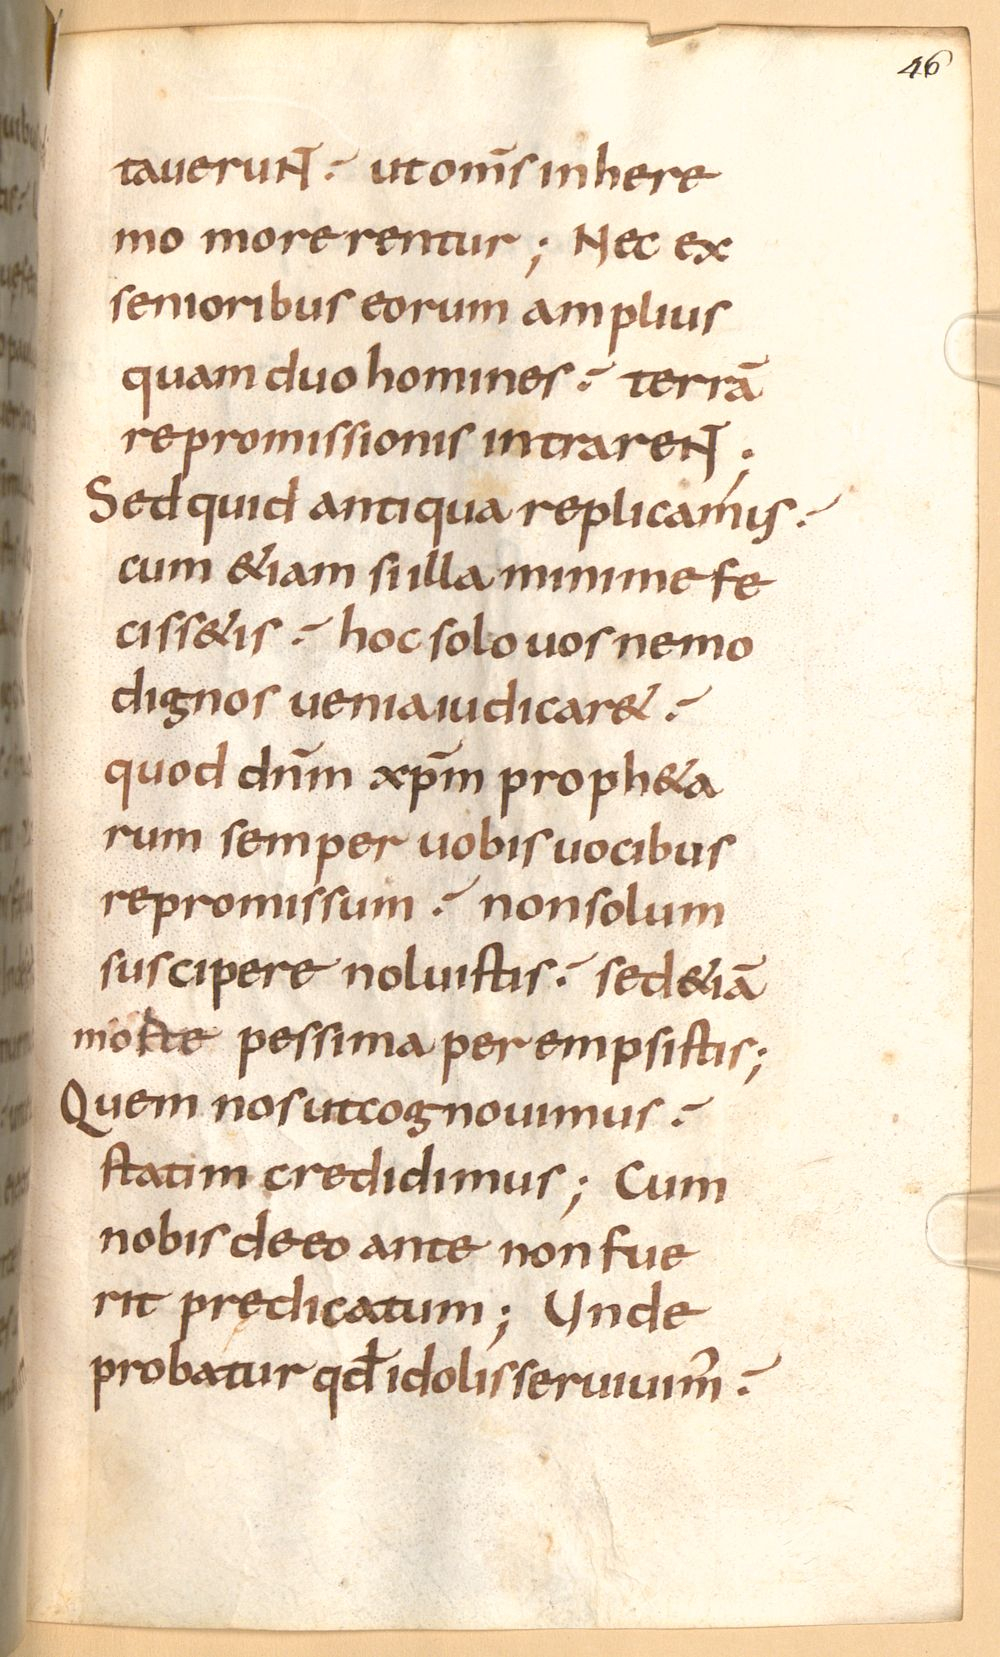 46
tauerunt̄ ut om̄s in here
mo morerentur; Nec ex
senioribus eorum amplius
quam duo homines terrā
repromissionis intrarent̄.
Sed quid antiqua replicamus
cum &iam si illa minime fe
ciss&is hoc solo uos nemo
dignos uenia iudicar&
quod dn̄m xp̄m proph&a
rum semper uobis uocibus
repromissum non solum
suscipere noluistis sed &iā
morte pessima per empsistis;
Quem nos ut cognouimus
statim credidimus; Cum
nobis de eo ante non fue
rit predicatum; Unde
probatur qđ idolis seruiuim̄